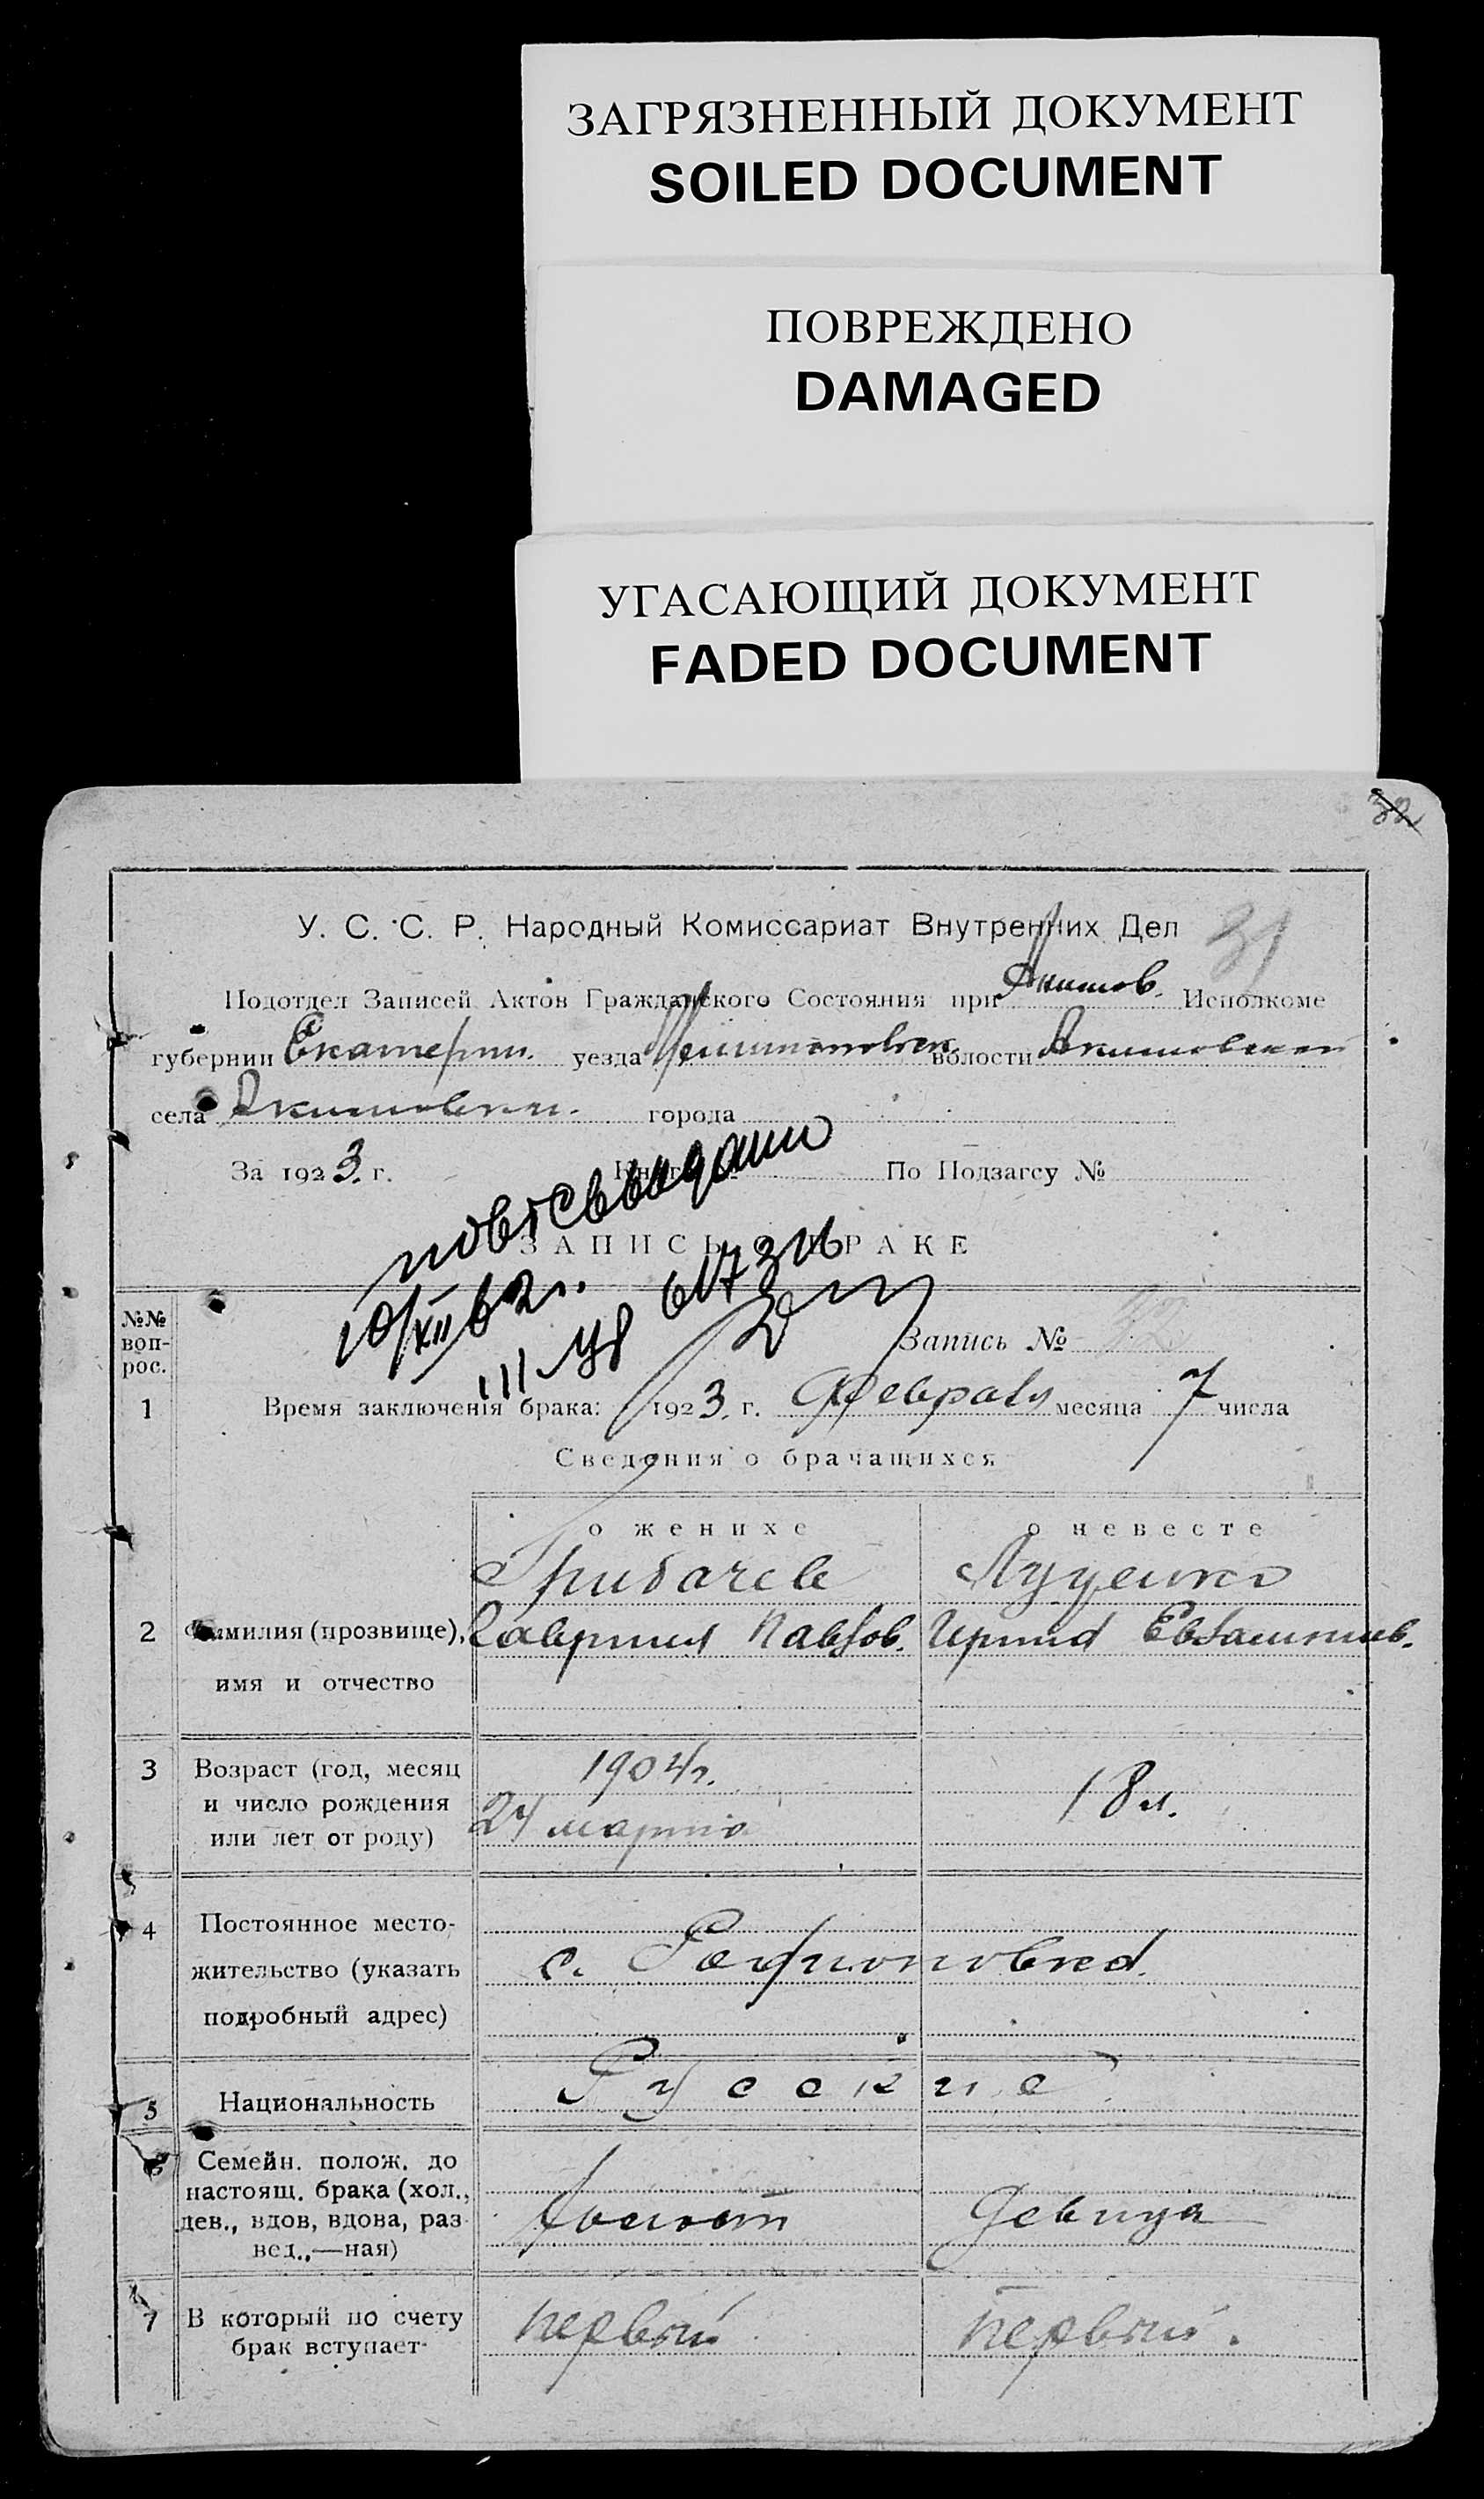 ЗАГРЯЗНЕННЫЙ ДОКУМЕНТ
SOILED DOCUMENT
ПОВРЕЖДЕНО
DAMAGED
УГАСАЮЩИЙ ДОКУМЕНТ
FADED DOCUMENT
32
31
У. С. С. Р. Народный Комиссариат Внутренних Дел
Подотдел Записей Актов Гражданского Состояния при Акимов. Исполкоме
губернии Екатерин. уезда волости Акимовской
села Акимовки. города
За 1923. г. По Подзагсу №
ЗАПИСЬ О БРАКЕ
10/XII 62 г.
III УР 617316
№№ воп-рос.
Запись №
1 Время заключенія брака: 1923. г. Февраля месяца 7 числа
Сведения о брачащихся
о женихе о невесте
Грибачев Луценко
2 Фамилия (прозвище), Гавриил Павлов. Ирина Евлампиев.
имя и отчество
3 Возраст (год, месяц 1904 г.
и число рождения 18 л.
или лет от роду) 24 марта
4 Постоянное место-
жительство (указать с.
подробный адрес)
5 Национальность Русские
6 Семейн. полож. до
настоящ. брака (хол.,
дев., вдов, вдова, раз холост девица
вед.,—ная)
7 В который по счету первый первый.
брак вступает